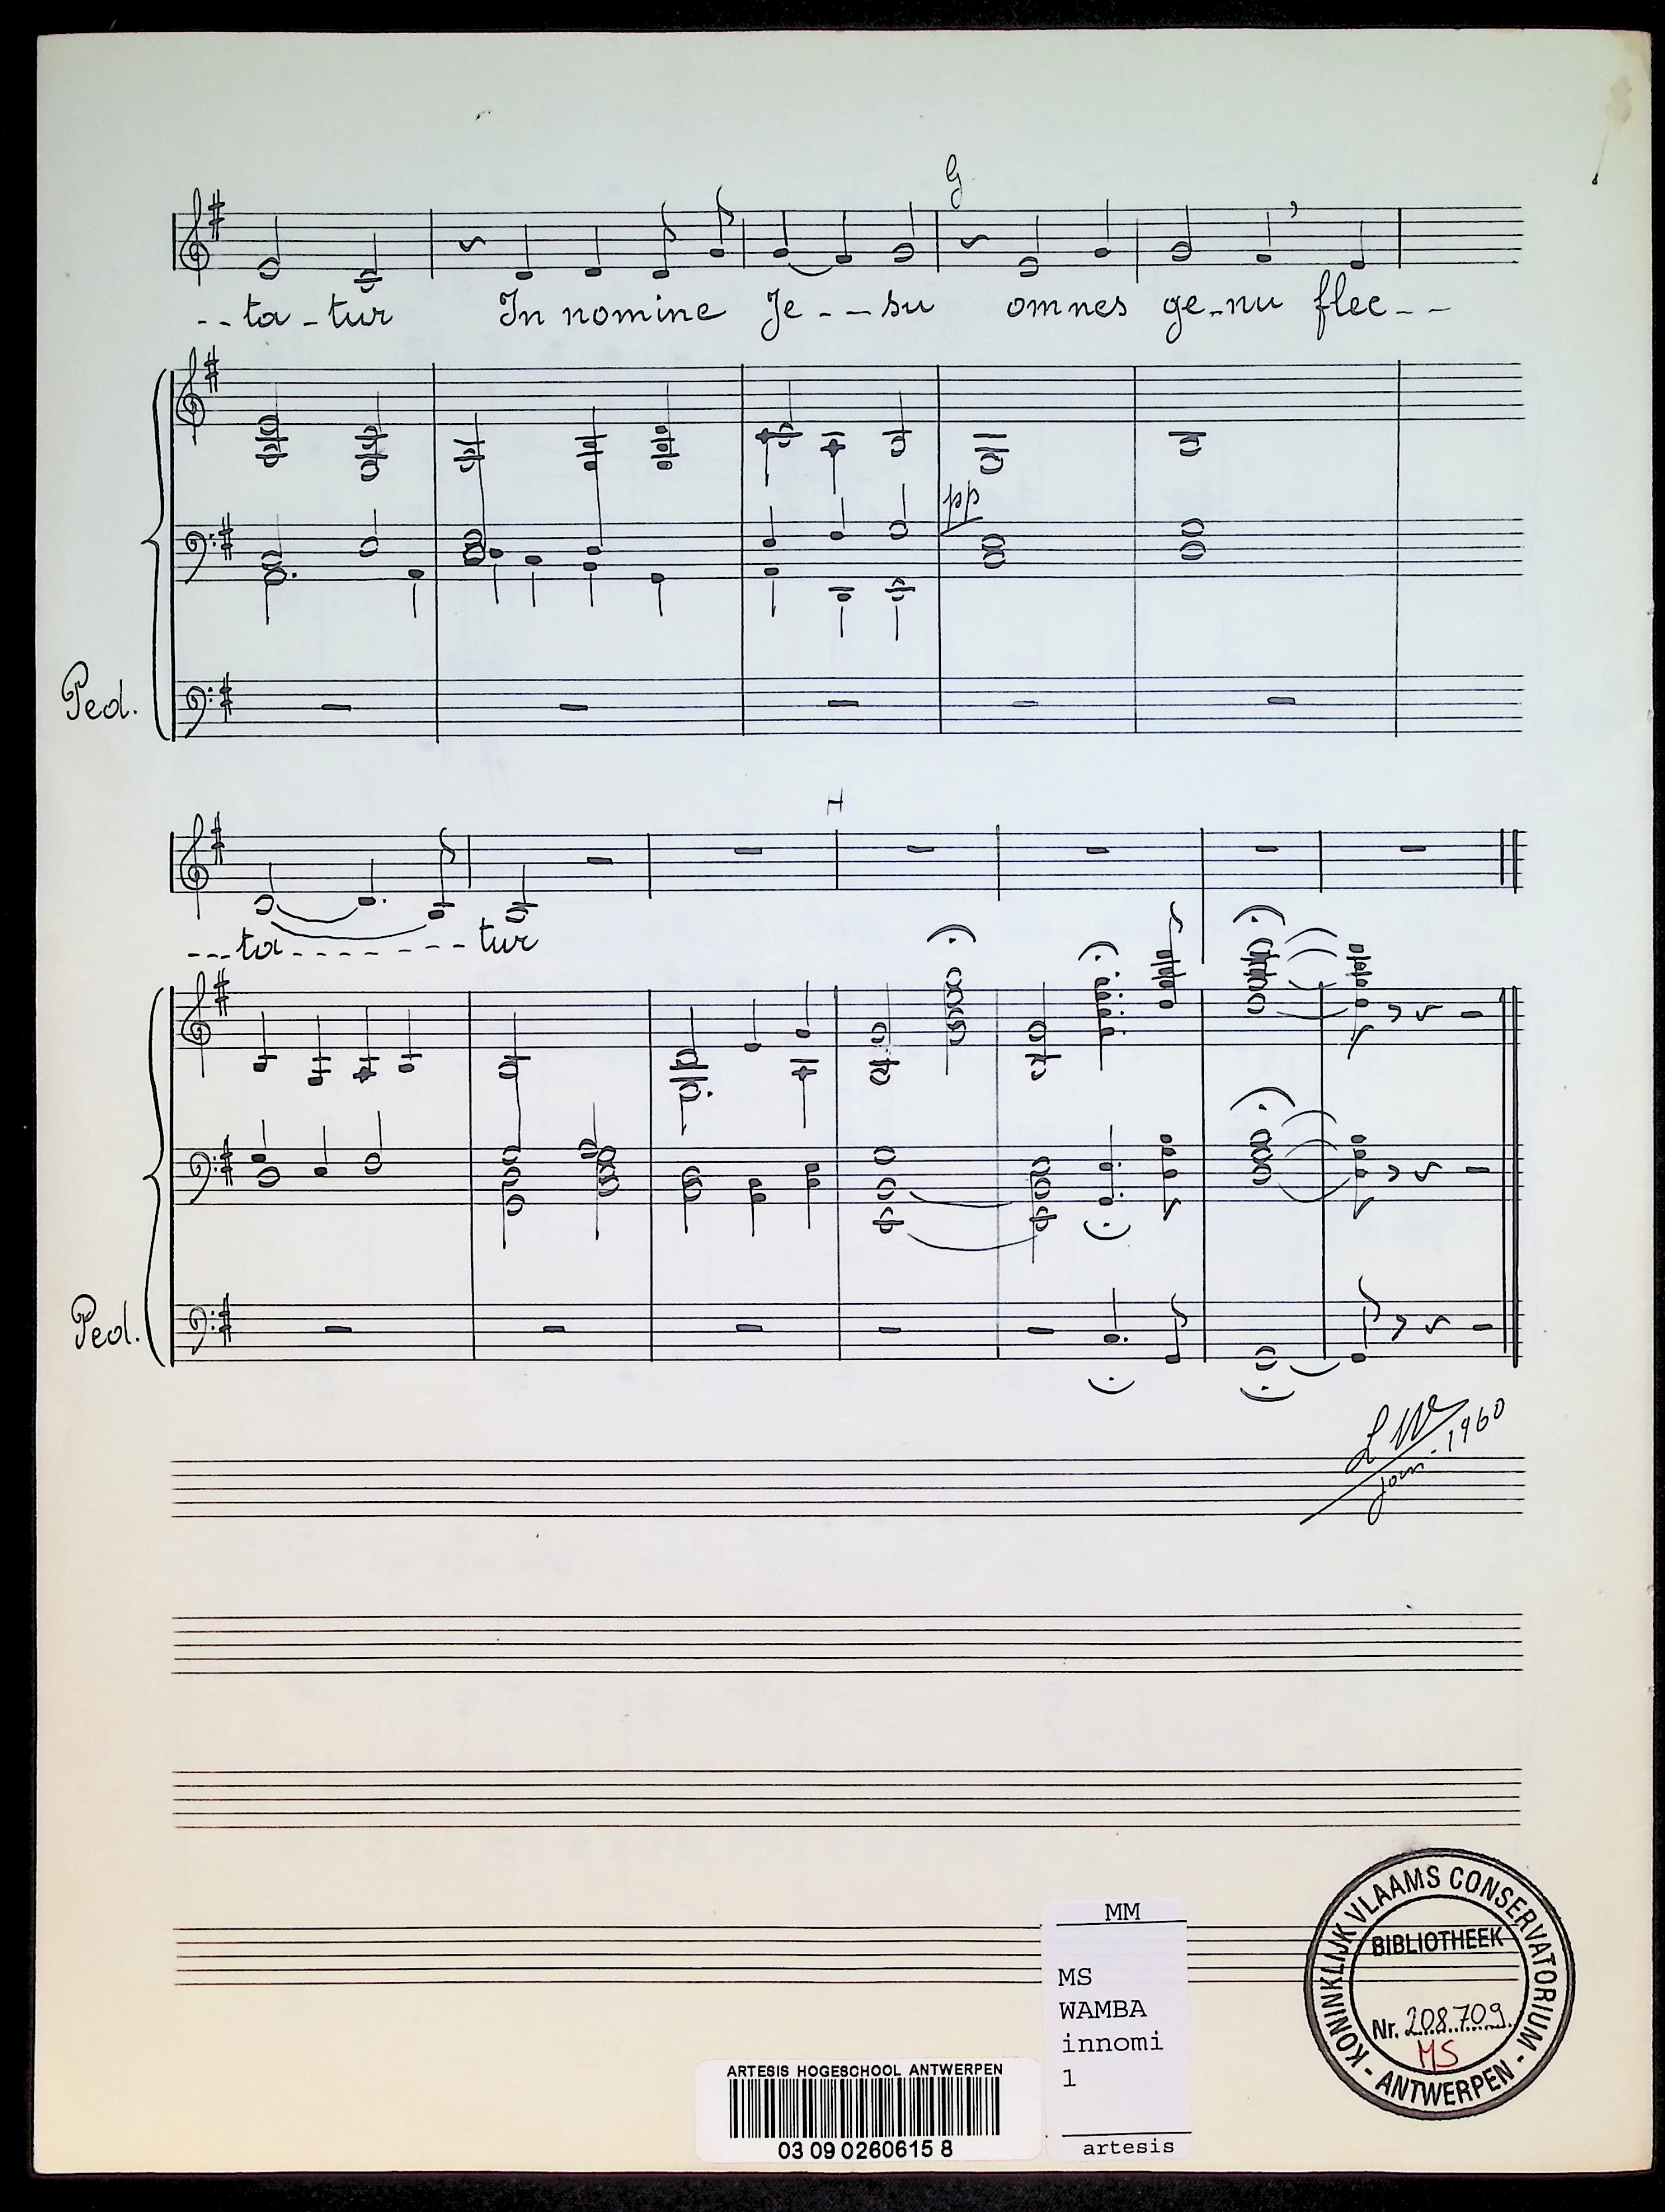 G
--ta-tur In nomine Je---su omnes ge-nu flec--
pp
Ped.
H
---ta-------tur
Ped.
LW
1960
MM
MS
WAMBA
innomi
1
artesis
ARTESIS HOGESCHOOL ANTWERPEN
03 09 0260615 8
KONINKLIJK VLAAMS CONSERVATORIUM - ANTWERPEN -
BIBLIOTHEEK
Nr. 208.709
MS